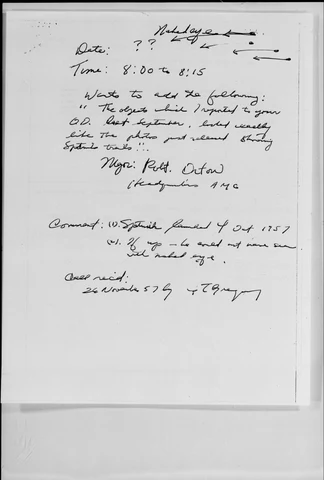 Naked eye
Date: ??
Time: 8:00 to 8:15
Wants to add the following:
"The objects which I reported to your
O.D. last September, looked exactly
like the photos just released showing
Sputnik trails".
Major Robt.
Headquarters AMC
Comment: (1) Sputnik launched 4 Oct 1957
(2) If up – he could not have seen
with naked eye.
Call rec'd:
26 November 57 by